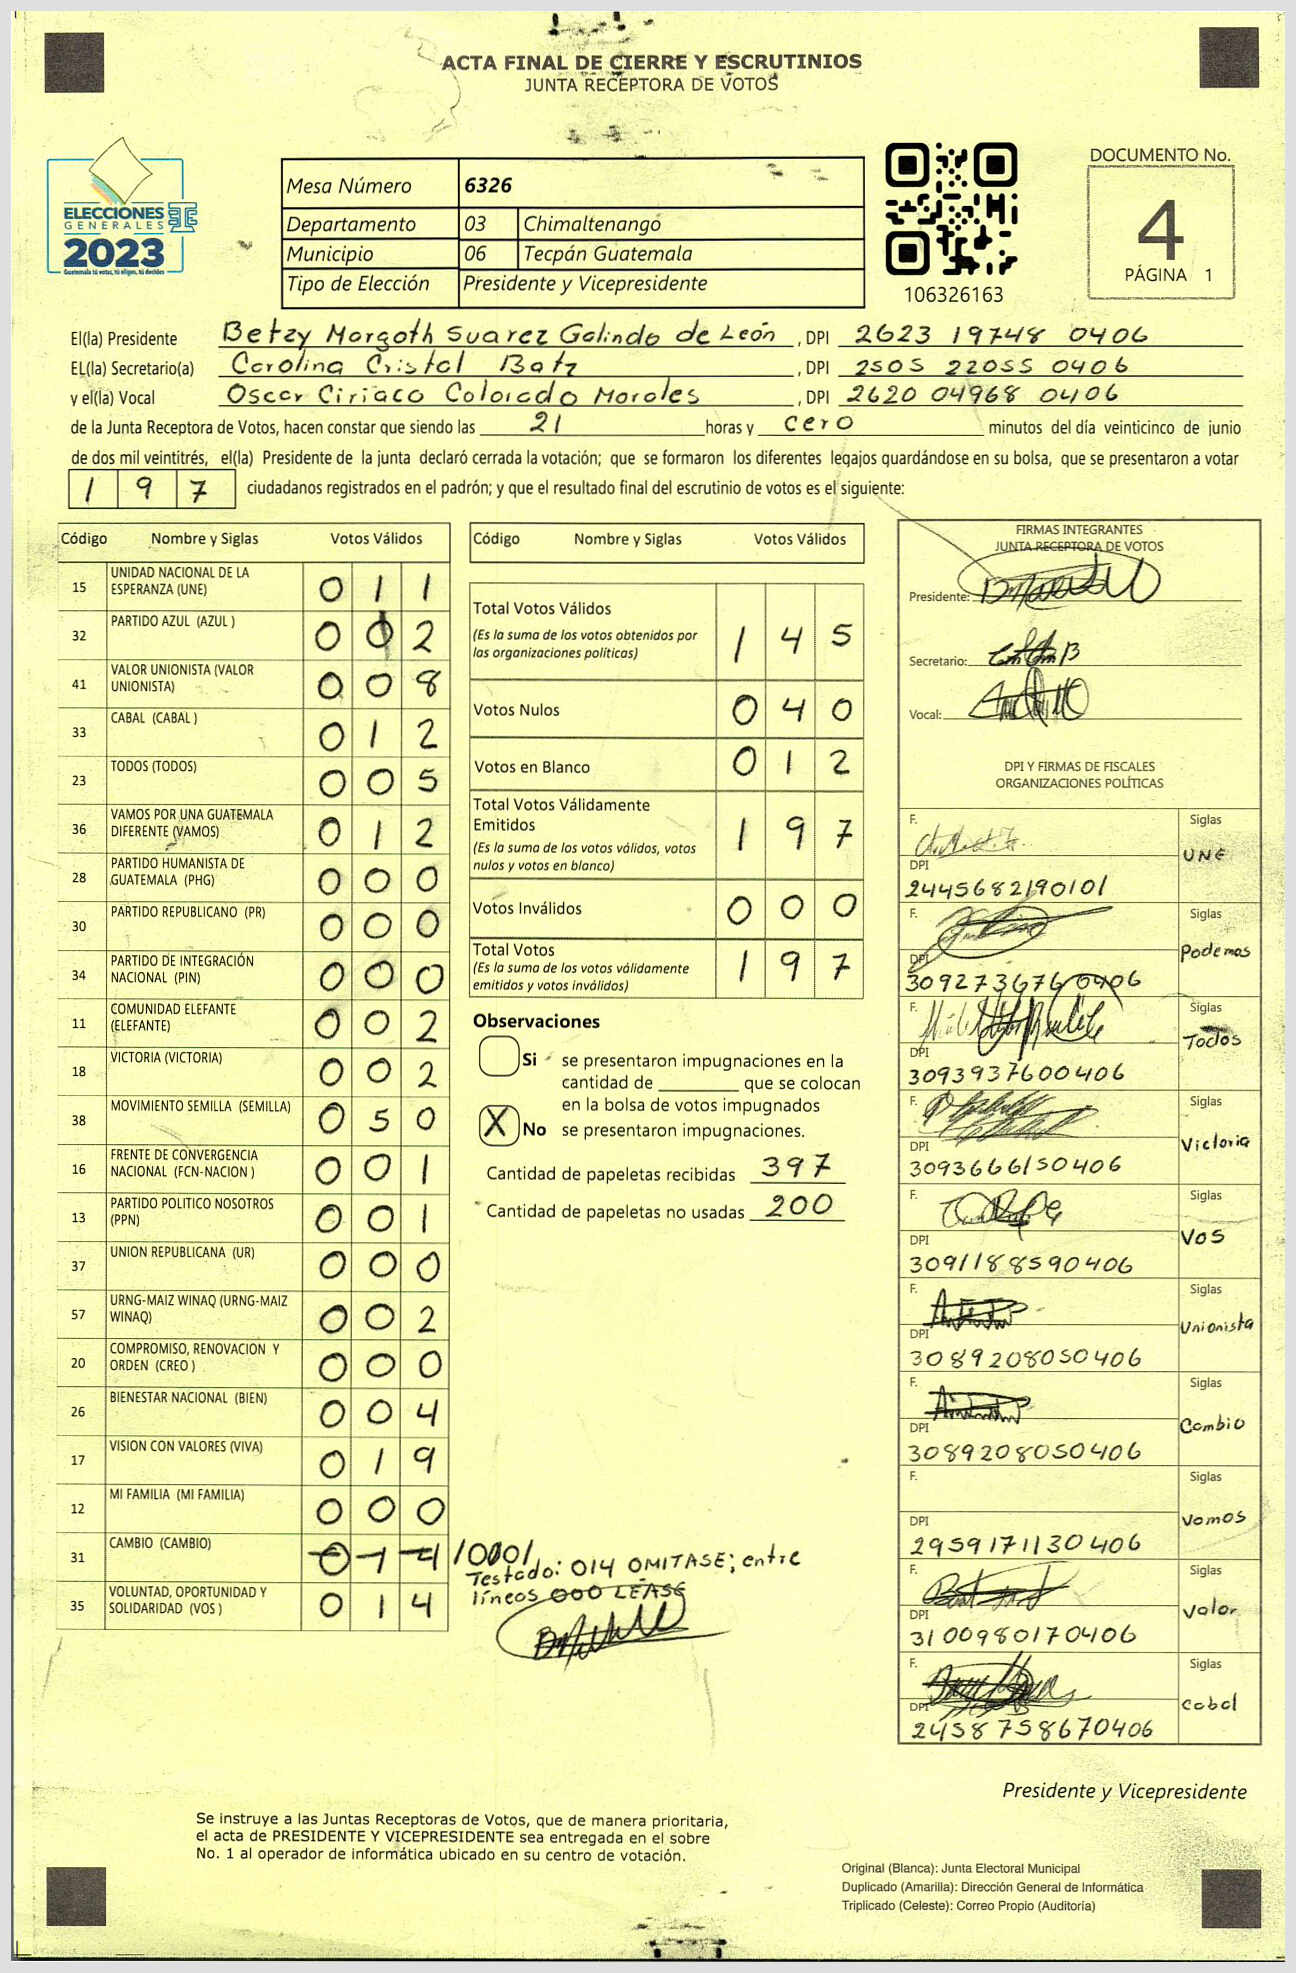 ACTA FINAL DE CIERRE Y ESCRUTINIOS
JUNTA RECEPTORA DE VOTOS
ELECCIONES
GENERALES
2023
Guatemala tú votas, tú eliges, tú decides
Mesa Número 6326
Departamento 03 Chimaltenango
Municipio 06 Tecpán Guatemala
Tipo de Elección Presidente y Vicepresidente
106326163
DOCUMENTO No.
4
PÁGINA 1
El(la) Presidente Betzy Morgoth Suarez Galindo de León , DPI 2623 19748 0406
EL(la) Secretario(a) Carolina Cristal Batz , DPI 2505 22055 0406
y el(la) Vocal Oscar Ciriaco Colorado Morales , DPI 2620 04968 0406
de la Junta Receptora de Votos, hacen constar que siendo las 21 horas y cero minutos del día veinticinco de junio
de dos mil veintitrés, el(la) Presidente de la junta declaró cerrada la votación; que se formaron los diferentes legajos guardándose en su bolsa, que se presentaron a votar
197 ciudadanos registrados en el padrón; y que el resultado final del escrutinio de votos es el siguiente:
Código Nombre y Siglas Votos Válidos
15 UNIDAD NACIONAL DE LA
ESPERANZA (UNE) 0 1 1
32 PARTIDO AZUL (AZUL ) 0 0 2
41 VALOR UNIONISTA (VALOR
UNIONISTA) 0 0 8
33 CABAL (CABAL ) 0 1 2
23 TODOS (TODOS) 0 0 5
36 VAMOS POR UNA GUATEMALA
DIFERENTE (VAMOS) 0 1 2
28 PARTIDO HUMANISTA DE
GUATEMALA (PHG) 0 0 0
30 PARTIDO REPUBLICANO (PR) 0 0 0
34 PARTIDO DE INTEGRACIÓN
NACIONAL (PIN) 0 0 0
11 COMUNIDAD ELEFANTE
(ELEFANTE) 0 0 2
18 VICTORIA (VICTORIA) 0 0 2
38 MOVIMIENTO SEMILLA (SEMILLA) 0 5 0
16 FRENTE DE CONVERGENCIA
NACIONAL (FCN-NACION ) 0 0 1
13 PARTIDO POLITICO NOSOTROS
(PPN) 0 0 1
37 UNION REPUBLICANA (UR) 0 0 0
57 URNG-MAIZ WINAQ (URNG-MAIZ
WINAQ) 0 0 2
20 COMPROMISO, RENOVACION Y
ORDEN (CREO ) 0 0 0
26 BIENESTAR NACIONAL (BIEN) 0 0 4
17 VISION CON VALORES (VIVA) 0 1 9
12 MI FAMILIA (MI FAMILIA) 0 0 0
31 CAMBIO (CAMBIO) 0 1 4 /000/
35 VOLUNTAD, OPORTUNIDAD Y
SOLIDARIDAD (VOS ) 0 1 4
Testado: 014 OMITASE; entre
líneos 000 LEASE
Código Nombre y Siglas Votos Válidos
Total Votos Válidos
(Es la suma de los votos obtenidos por
las organizaciones políticas) 1 4 5
Votos Nulos 0 4 0
Votos en Blanco 0 1 2
Total Votos Válidamente
Emitidos
(Es la suma de los votos válidos, votos
nulos y votos en blanco) 1 9 7
Votos Inválidos 0 0 0
Total Votos
(Es la suma de los votos válidamente
emitidos y votos inválidos) 1 9 7
Observaciones
Si se presentaron impugnaciones en la
cantidad de ________ que se colocan
en la bolsa de votos impugnados
X No se presentaron impugnaciones.
Cantidad de papeletas recibidas 397
Cantidad de papeletas no usadas 200
FIRMAS INTEGRANTES
JUNTA RECEPTORA DE VOTOS
Presidente:
Secretario:
Vocal:
DPI Y FIRMAS DE FISCALES
ORGANIZACIONES POLÍTICAS
F. Siglas
UNE
DPI
2445682190101
F. Siglas
Podemos
DPI
3092736760406
F. Siglas
Todos
DPI
3093937600406
F. Siglas
Victoria
DPI
3093666150406
F. Siglas
VOS
DPI
3091188590406
F. Siglas
Unionista
DPI
3089208050406
F. Siglas
Combio
DPI
3089208050406
F. Siglas
Vomos
DPI
2959171130406
F. Siglas
Valor
DPI
3100980170406
F. Siglas
Cabal
DPI
2458758670406
Presidente y Vicepresidente
Se instruye a las Juntas Receptoras de Votos, que de manera prioritaria,
el acta de PRESIDENTE Y VICEPRESIDENTE sea entregada en el sobre
No. 1 al operador de informática ubicado en su centro de votación.
Original (Blanca): Junta Electoral Municipal
Duplicado (Amarilla): Dirección General de Informática
Triplicado (Celeste): Correo Propio (Auditoría)